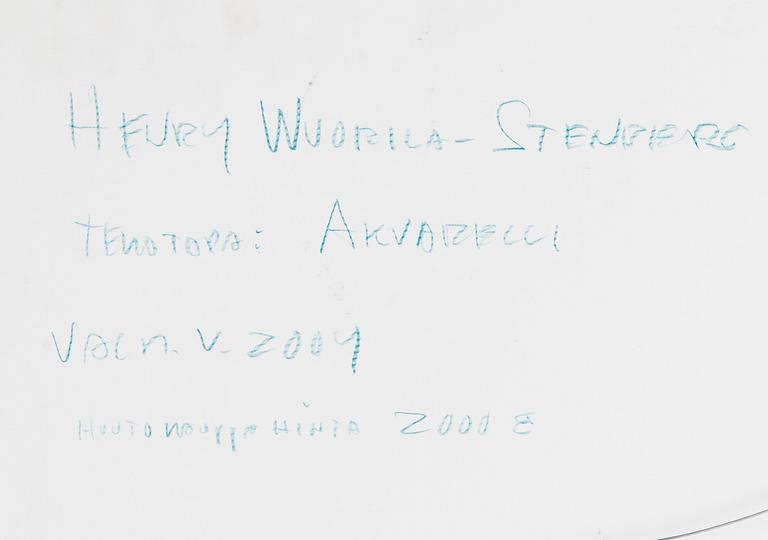 HENRY WUORILA-STENBERG
TEKOTAPA: AKVARELLI
VALM. V. 2004
HUUTOKAUPPA HINTA 2000 €